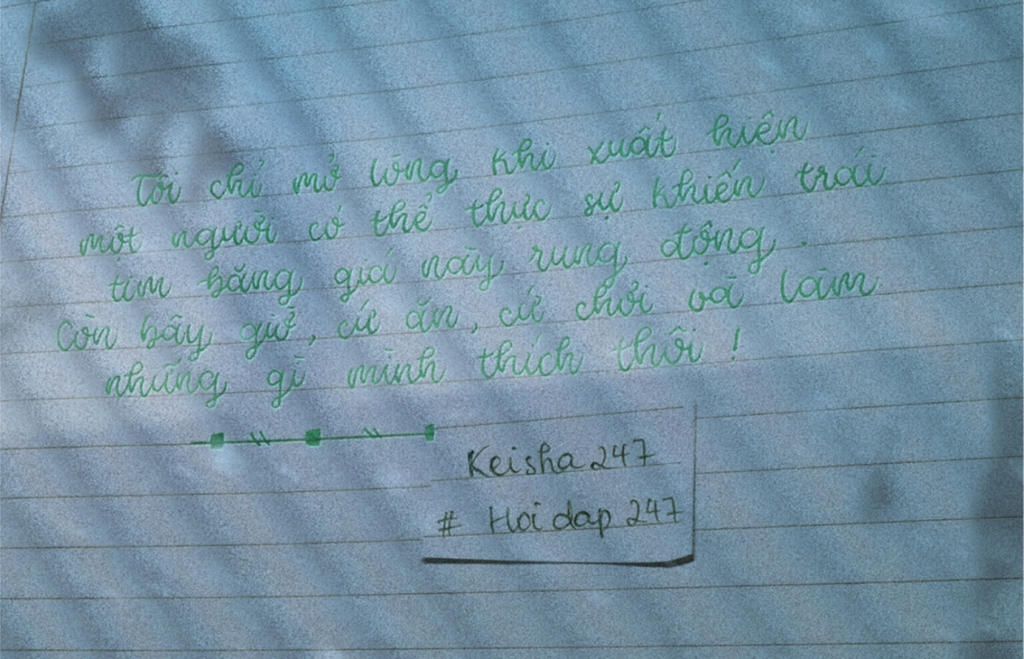 Tôi chỉ mở lòng khi xuất hiện
một người có thể thực sự khiến trái
tim băng giá này rung động.
Còn bây giờ, cứ ăn, cứ chơi và làm
những gì mình thích thôi !
Keisha 247
# Hoi dap 247